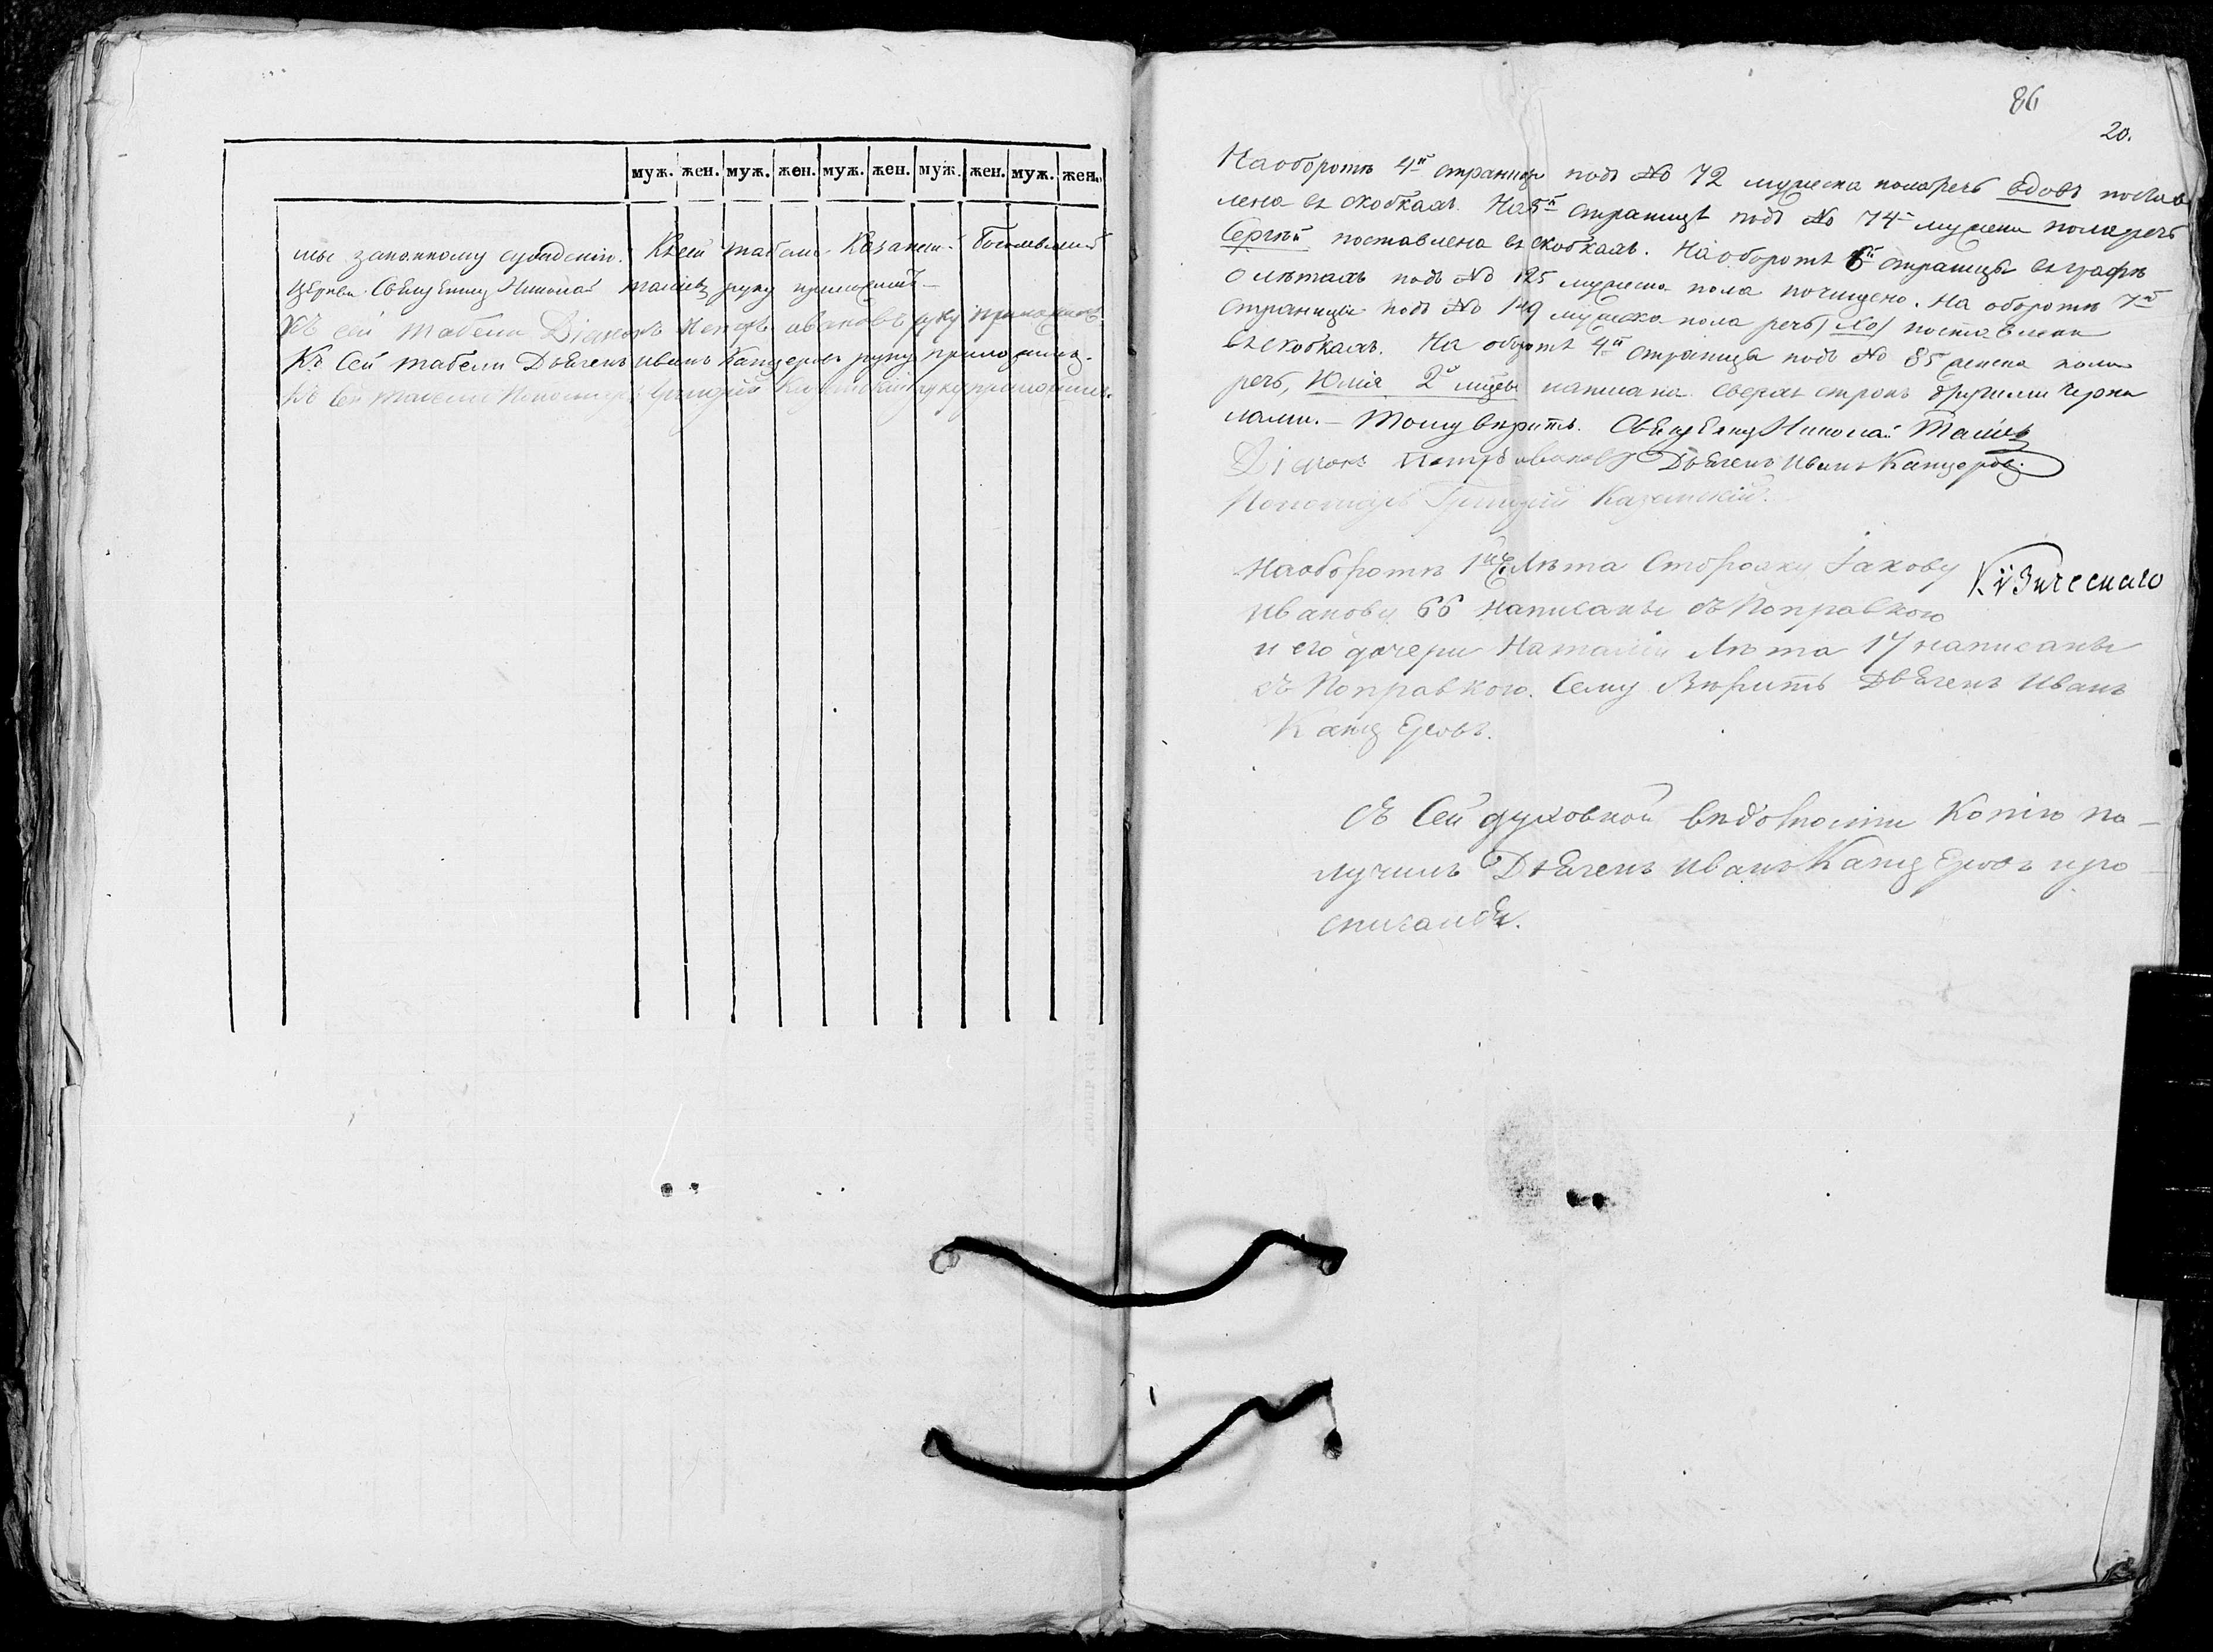 муж. жен. муж. жен. муж. жен. муж. жен. муж. жен.
мы законному сужденію. Къ сей табели Казанской
Церкви Священникъ Николай руку приложилъ
Къ сей табели Діаконъ Петръ Ивановъ руку приложилъ.
Къ сей табели Дьячекъ Иванъ Канцеровъ руку приложилъ.
Къ сей табели Пономарь Григорій Казанскій руку приложилъ.
86
20.
На оборотѣ 4й страницы подъ № 72 мужеска пола речь вдовъ постав
лена въ скобкахъ. На 5й страницѣ подъ № 74 мужеска пола речь
Сергѣй поставлена въ скобкахъ. На оборотѣ 6й страницы въ графѣ
о лѣтахъ подъ № 125 мужеска пола почищено. На оборотѣ 7й
страницы подъ № 149 мужеска пола речь /№/ поставлена
въ скобкахъ. На оборотѣ 4й страницы подъ № 85 женска пола
речь, Юлія 2й написана сверхъ строкъ другими черни
лами. – Тому вѣритъ. Священникъ Николай
Діаконъ Петръ Ивановъ Дьячекъ Иванъ Канцеровъ.
Пономарь Григорій Казанскій.
На оборотѣ 1й лѣта Сторожу Іакову
Иванову 66 написаны съ поправкою
и его дочери Наталіи лѣта 17 написаны
съ поправкою. Сему вѣритъ Дьячекъ Иванъ
Канцеровъ.
Съ сей духовной вѣдомости копію по-
лучилъ Дьячекъ Иванъ Канцеровъ и ро-
списался.